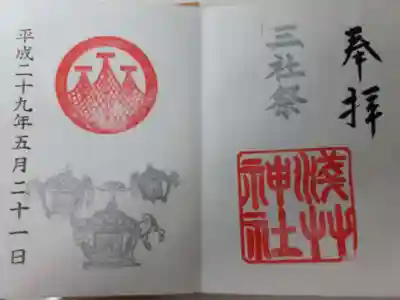 奉拝
三社祭
浅草
神社
平成二十九年五月二十一日